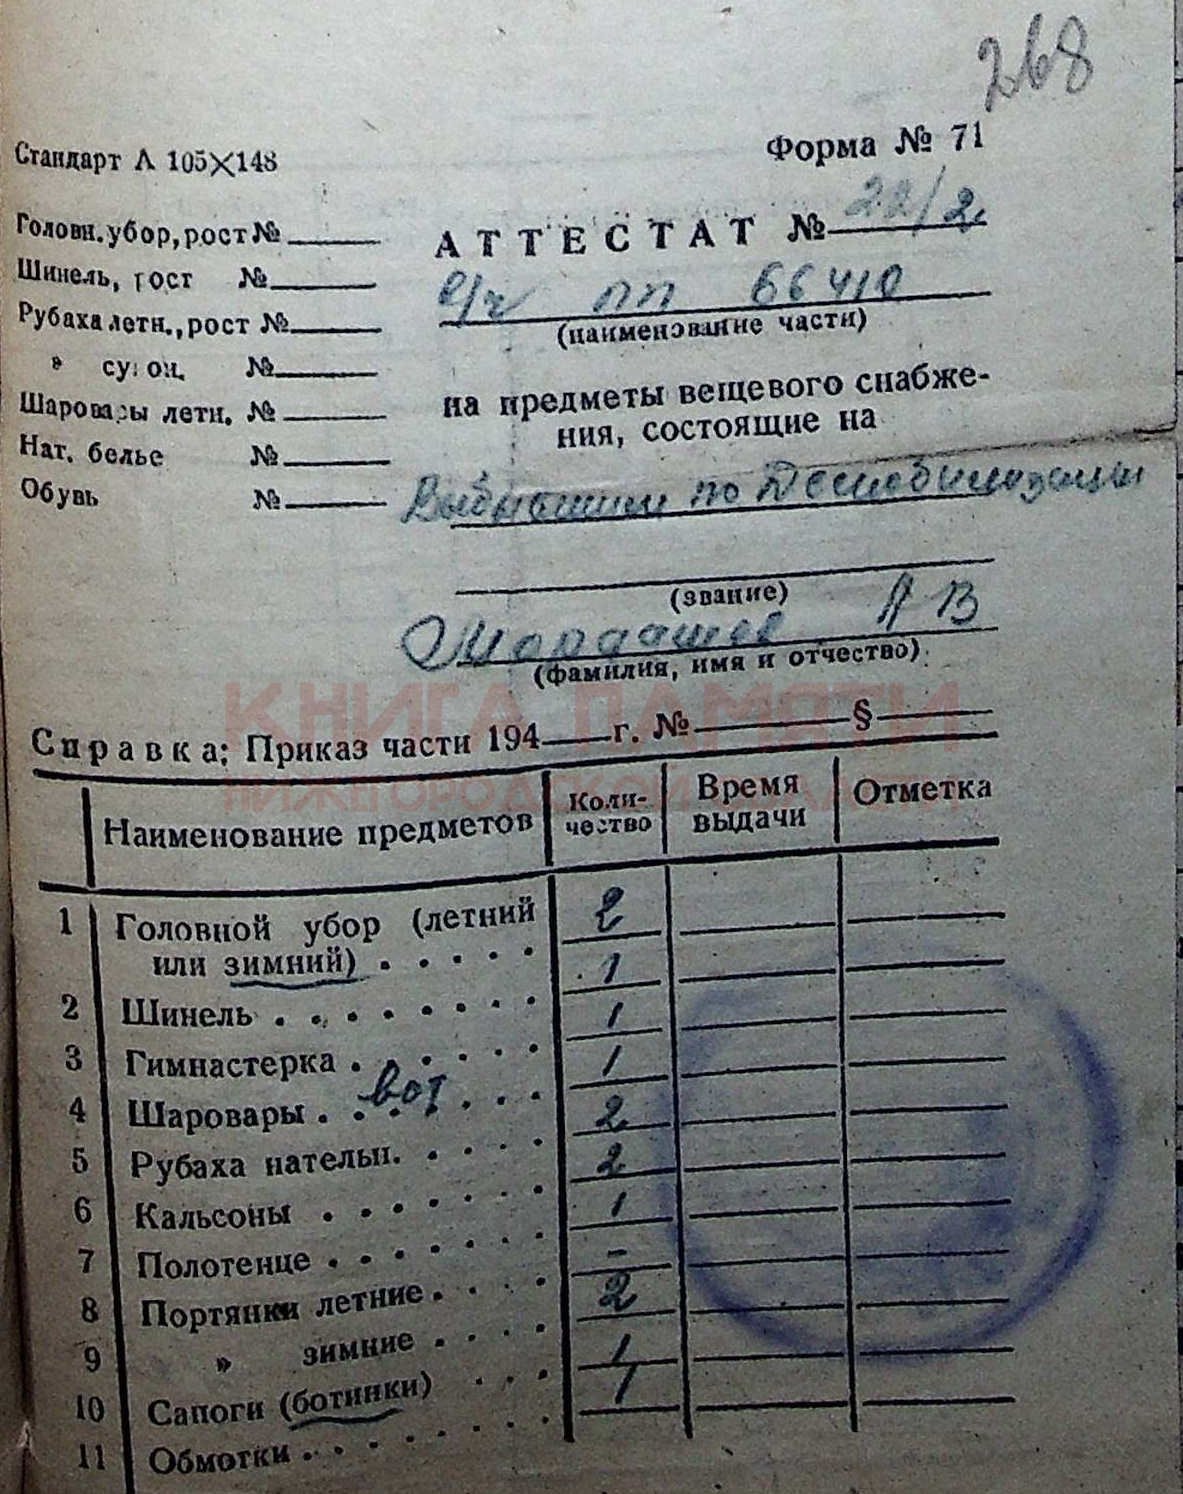 268
Стандарт А 105×148
Форма № 71
Головн. убор, рост №
Шинель, рост №
Рубаха летн., рост №
» сукон. №
Шаровары летн. №
Нат. белье №
Обувь №
АТТЕСТАТ № 22/2
в/ч пп 66410
(наименование части)
на предметы вещевого снабже-
ния, состоящие на
Выбывшим по Демобилизации
(звание)
А В
(фамилия, имя и отчество)
КНИГА ПАМЯТИ
НИЖЕГОРОДСКОЙ ОБЛАСТИ
Справка: Приказ части 194 г. № §
Наименование предметов Коли-чество Время выдачи Отметка
1 Головной убор (летний 2
или зимний) 1
2 Шинель 1
3 Гимнастерка 1
4 Шаровары 2
5 Рубаха нательн. 2
6 Кальсоны 1
7 Полотенце -
8 Портянки летние 2
9 » зимние 1
10 Сапоги (ботинки) 1
11 Обмотки